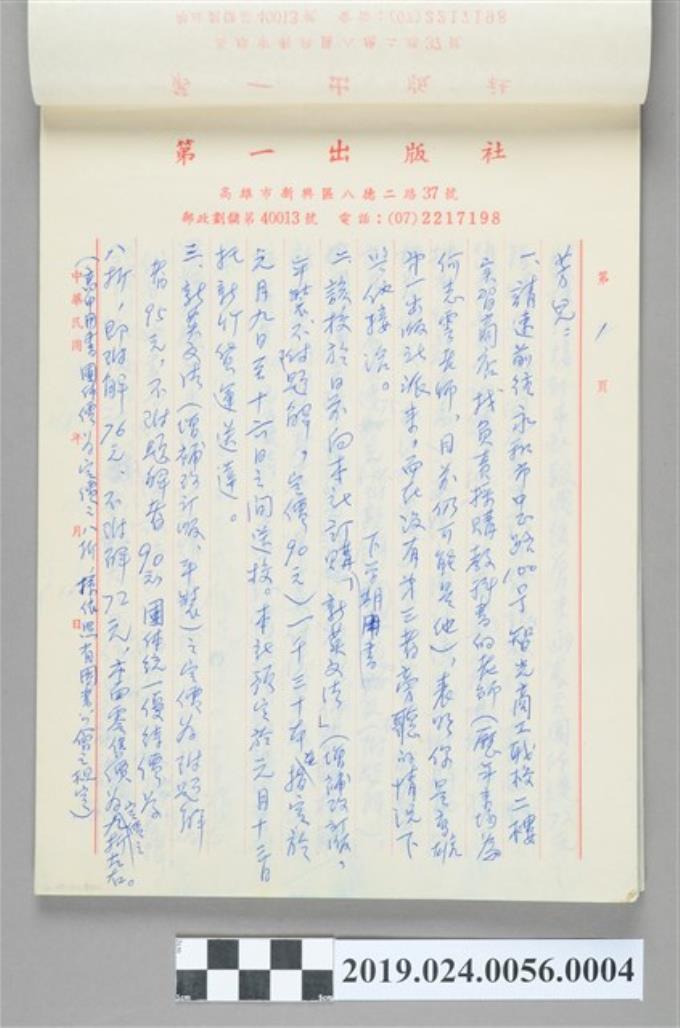 第一出版社
高雄市新興區八德二路37號
郵政劃儲第40013號 電話：(07)2217198
第 1 頁
芳兄：
一、請速前往永和市中正路100号智光商工職校二樓
實習商店，找負責採購教科書的老師（歷年來均為
何志雲老師、目前仍可能是他），表明你是高雄
第一出版社派来，而在沒有第三者旁聽的情況下
與他接洽。
二、該校於日前向本社訂購下学期用書「新英文法」（增補改訂版、
平裝不附題解，定價90元）一千三十本，並指定於
元月九日至十六日之間送校。本社預定於元月十三日
托新竹貨運送達。
三、新英文法（增補改訂版、平裝）之定價為附題解
者95元，不附題解者90元，團体統一優待價為
八折，即附解76元，不附解72元，本書零售價為定價之九折左右。
（高中用書團体價為定價之八折，係依照圖書公會之規定）
中華民國 年 月 日
2019.024.0056.0004